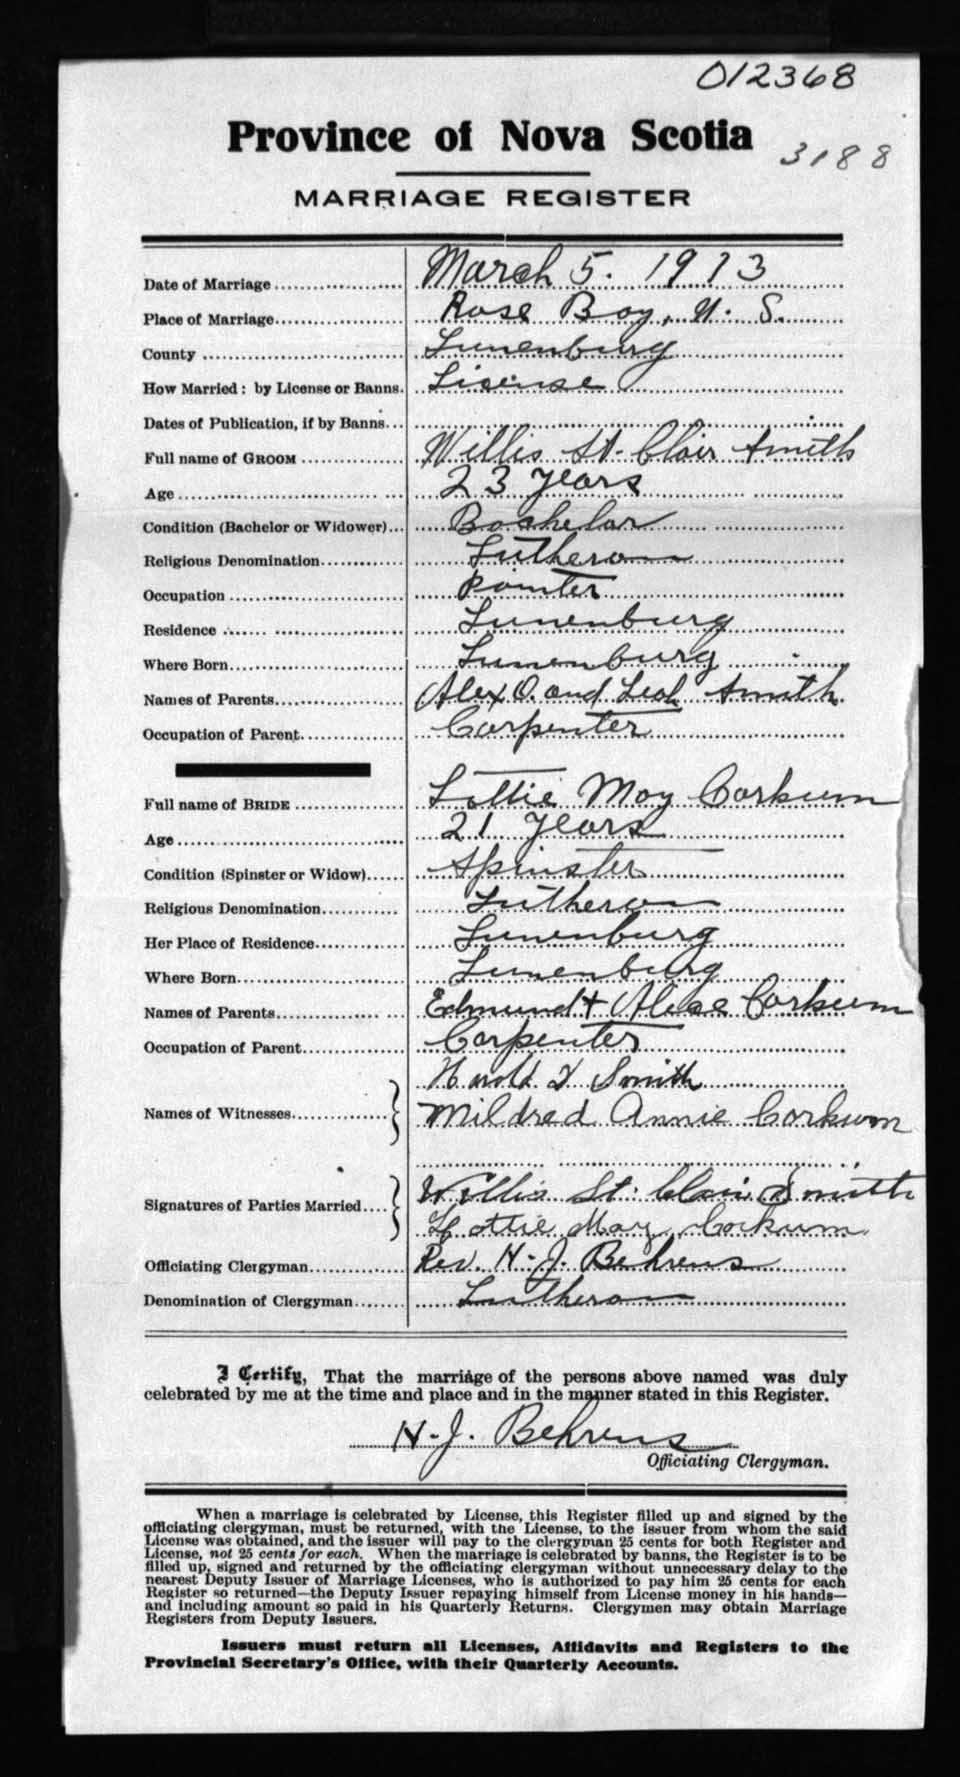 012368
Province of Nova Scotia
3188
MARRIAGE REGISTER
Date of Marriage March 5. 1913
Place of Marriage Rose Bay, N. S.
County Lunenburg
How Married: by License or Banns. Lisense
Dates of Publication, if by Banns
Full name of GROOM Willis St. Clair Smith
Age 23 years
Condition (Bachelor or Widower) Bachelar
Religious Denomination Lutheran
Occupation Painter
Residence Lunenburg
Where Born Lunenburg
Names of Parents Alex O. and Leah Smith
Occupation of Parent Carpenter
Full name of BRIDE Lottie May Corkum
Age 21 years
Condition (Spinster or Widow) Spinster
Religious Denomination Lutheran
Her Place of Residence Lunenburg
Where Born Lunenburg
Names of Parents Edmund + Alice Corkum
Occupation of Parent Carpenter
Names of Witnesses Harold Smith
Mildred Annie Corkum
Signatures of Parties Married Willis St. Clair Smith
Lottie May Corkum
Officiating Clergyman Rev. H. J. Behrens
Denomination of Clergyman Lutheran
I Certify, That the marriage of the persons above named was duly
celebrated by me at the time and place and in the manner stated in this Register.
H. J. Behrens
Officiating Clergyman.
When a marriage is celebrated by License, this Register filled up and signed by the
officiating clergyman, must be returned, with the License, to the issuer from whom the said
License was obtained, and the issuer will pay to the clergyman 25 cents for both Register and
License, not 25 cents for each. When the marriage is celebrated by banns, the Register is to be
filled up, signed and returned by the officiating clergyman without unnecessary delay to the
nearest Deputy Issuer of Marriage Licenses, who is authorized to pay him 25 cents for each
Register so returned—the Deputy Issuer repaying himself from License money in his hands—
and including amount so paid in his Quarterly Returns. Clergymen may obtain Marriage
Registers from Deputy Issuers.
Issuers must return all Licenses, Affidavits and Registers to the
Provincial Secretary's Office, with their Quarterly Accounts.